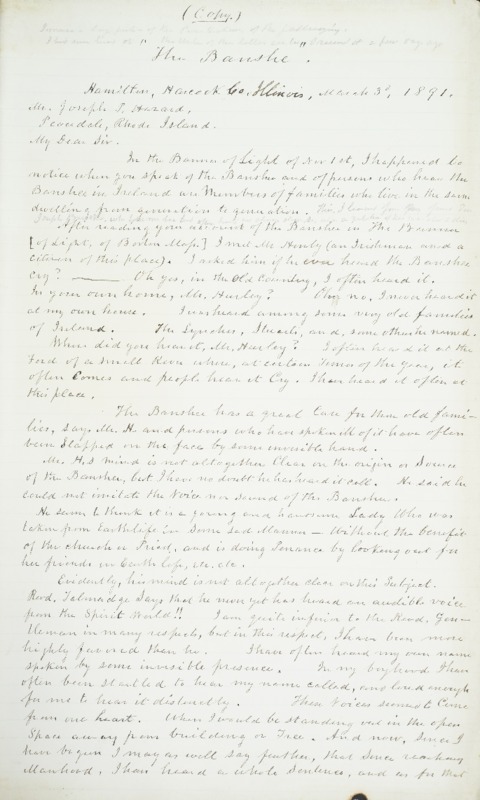 (Copy.)
"The Banshe."
Hamilton, Hancock Co. Illinois, March 3d, 1891.
Mr. Joseph P. Hazard.
Peacedale, Rhode Island.
My Dear Sir.
In the Banner of Light of Nov 1st, I happened to
notice when you speak of the Banshee and of persons who hear the
Banshee in Ireland are Members of families who live in the same
dwelling from generation to generation.
After reading your account of the Banshee in The Banner
[of Light, of Boston Mass.] I met Mr. Hurly (an Irishman and a
citizen of this place). I asked him if he ever heard the Banshee
cry? Oh yes, in the Old Country, I often heard it.
In your own home, Mr. Hurley? Oh, no, I never heard it
at my own house. I've heard among some very old families
of Ireland. The Lynches, Stuarts, and, some others he named.
Where did you hear it, Mr. Hurley? I often heard it at the
Ford of a small River where, at certain times of the year, it
often comes and people hear it Cry. I have heard it often at
this place.
The Banshee has a great Care for these old fami-
lies, says Mr. H. and persons who have spoken ill of it have often
been slapped on the face by some invisible hand.
Mr. H,s mind is not altogether Clear on the origin or Source
of the Banshee, but I have no doubt he has heard it call. He said he
could not imitate the Voice nor sound of the Banshee.
He seems to think it is a young and handsome Lady Who was
taken from Earth life in Some Sad Manner — Without the benefit
of the church or Priest, and is doing Penance by looking out for
her friends in Earth life, etc. etc.
Evidently, his mind is not altogether clear on this Subject.
Revd. Talmadge Says that he never yet has heard an audible voice
from the Spirit World!! I am quite inferior to the Revd. Gen-
tleman in many respects, but in this respect, I have been more
highly favored than he. I have often heard my own name
spoken by some invisible presence. In my boyhood I have
often been startled to hear my name called, and loud enough
for me to hear it distinctly. These Voices seemed to Come
from one heart. When I would be standing out in the open
Space away from building or Tree. And now, since I
have begun I may as well say further, that Since reaching
Manhood, I have heard a whole Sentence, and as for that